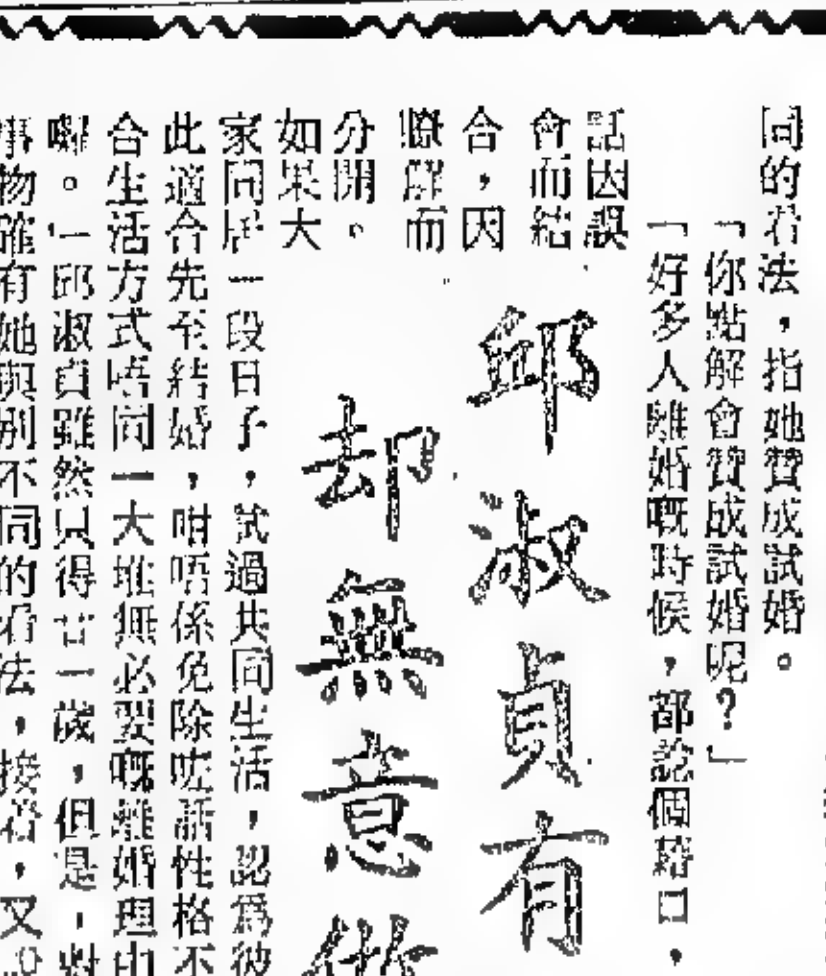 同的看法，指她贊成試婚。
「你點解會贊成試婚呢？」
「好多人離婚嘅時候，都諗個藉口，
話因誤
會而結
合，因
瞭解而
分開。
如果大
家同居一段日子，試過共同生活，認爲彼
此適合先至結婚，咁唔係免除咗話性格不
合生活方式唔同一大堆無必要嘅離婚理由
囉。」邱淑貞雖然只得廿一歲，但是，對
事物確有她與別不同的看法，接着，又說
邱淑貞有
却無意做